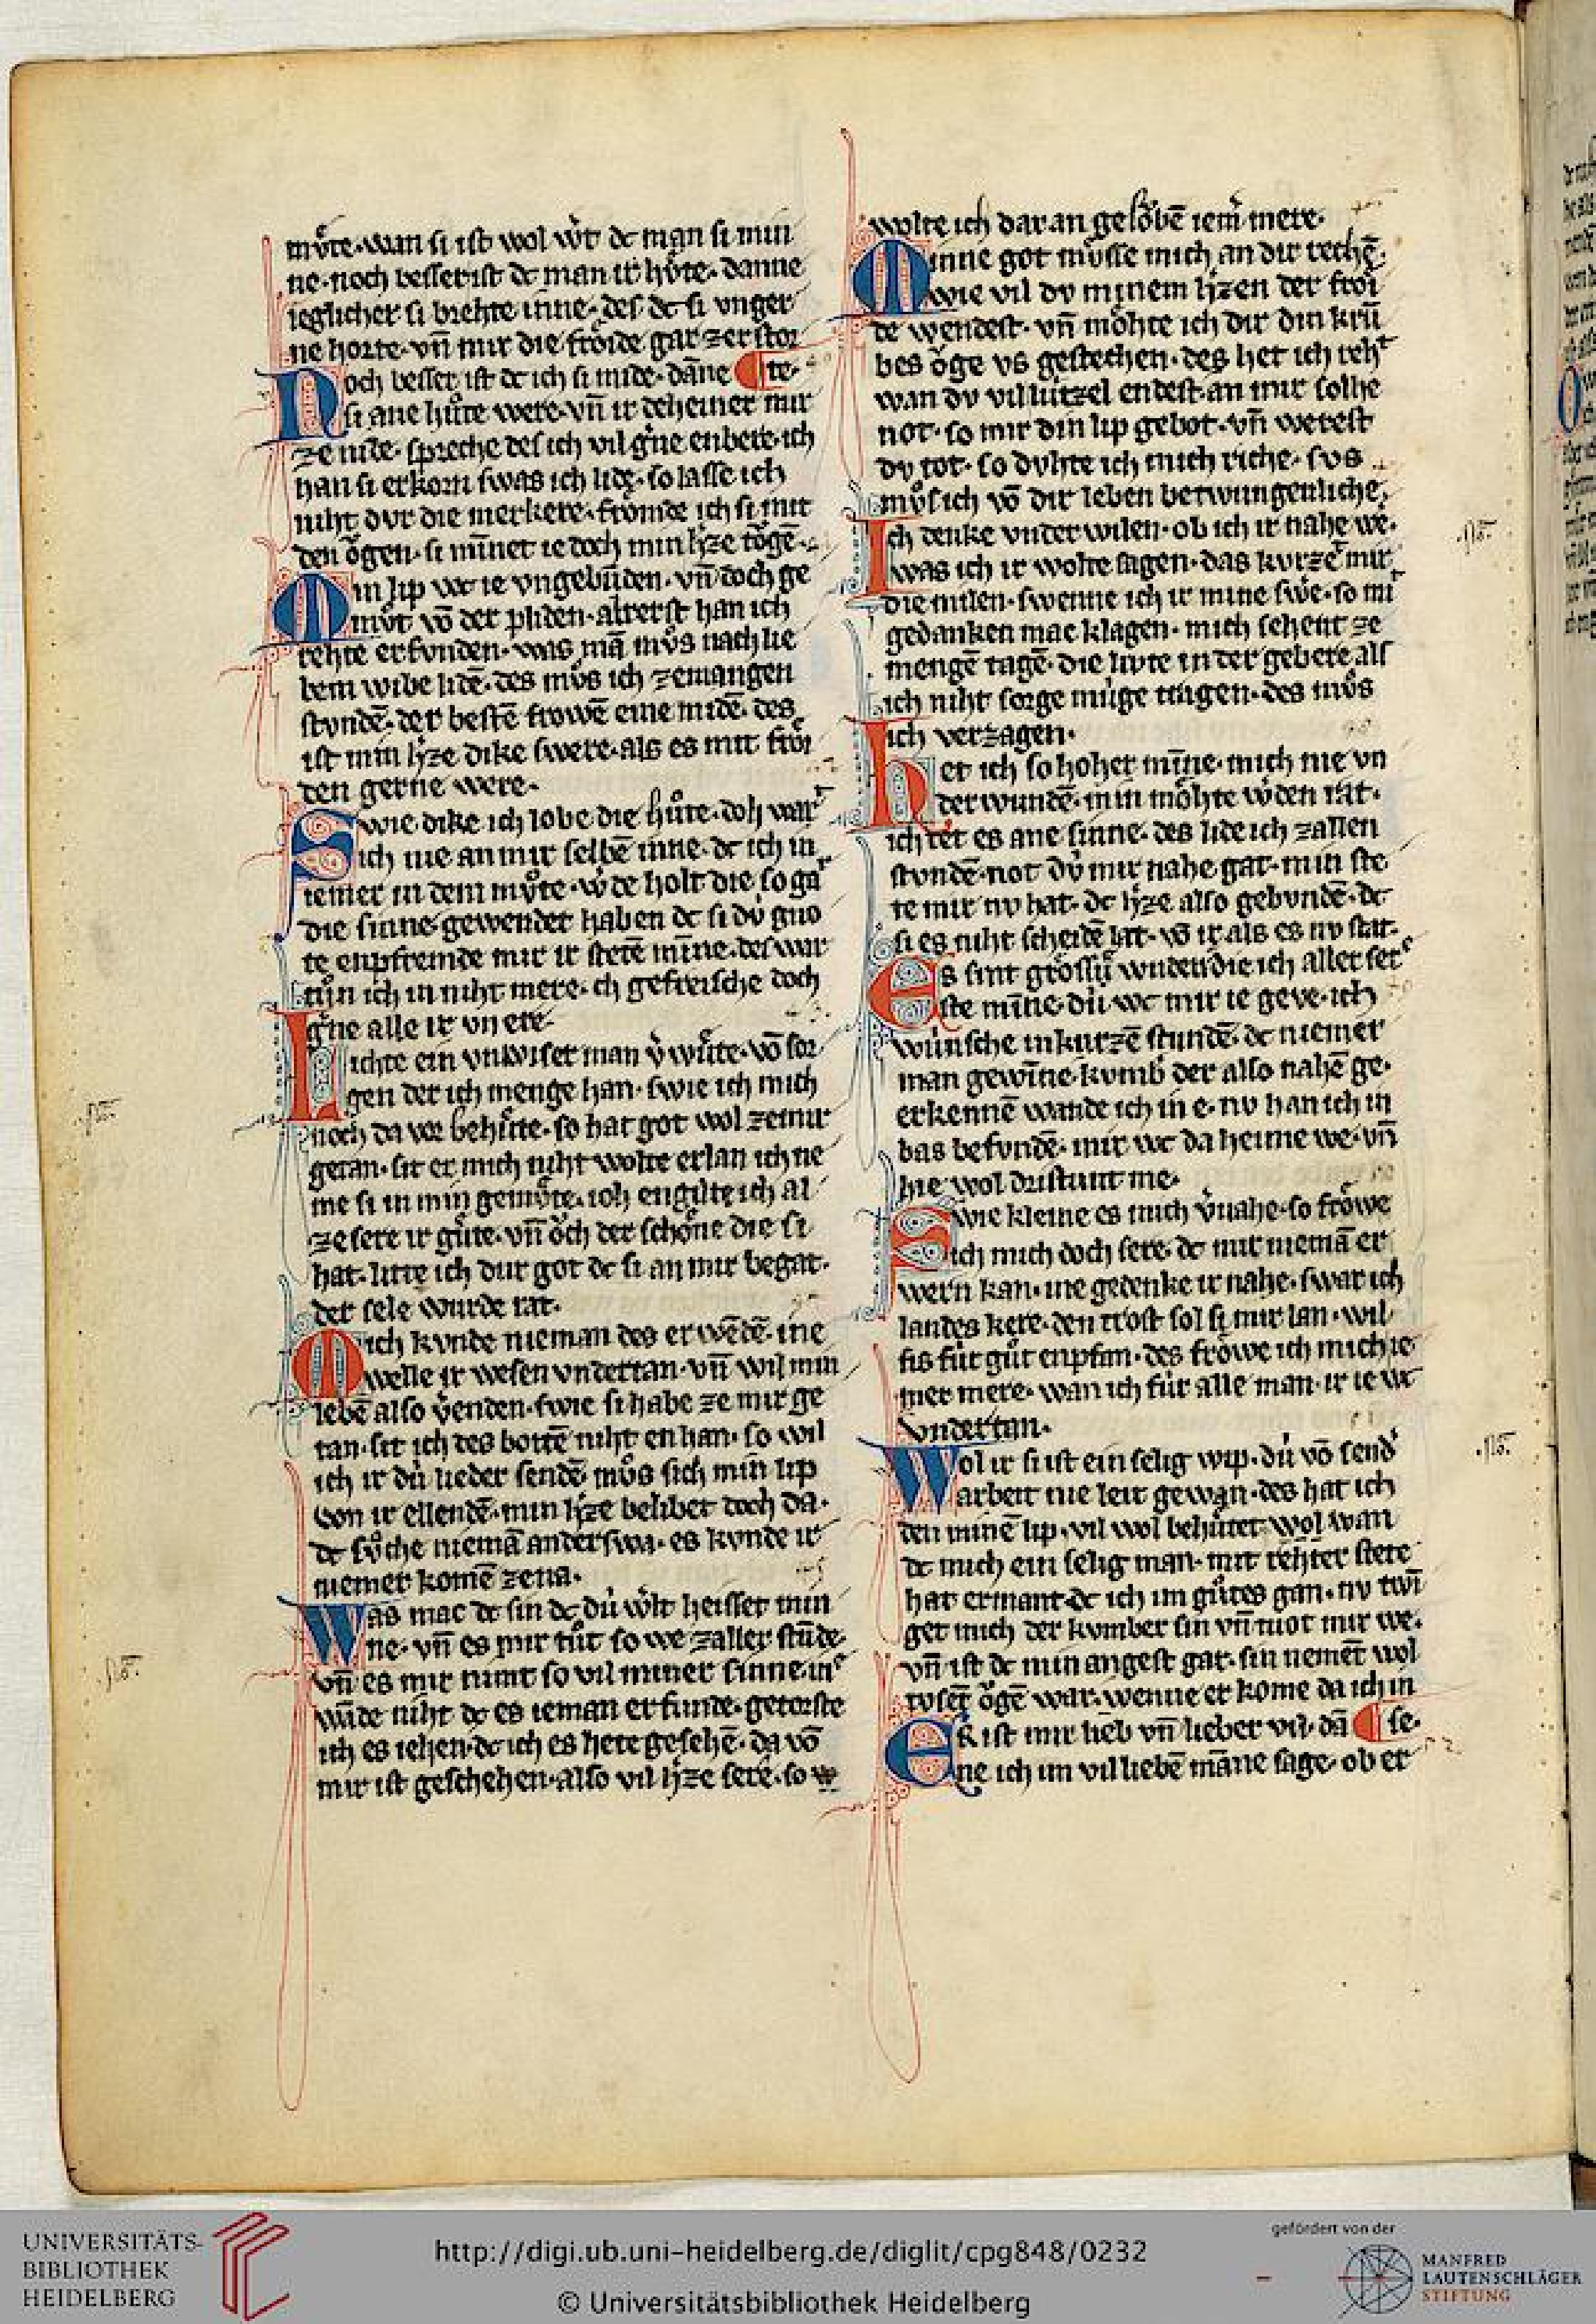 mv̊te·wan si ist wol w̾t dc man si min
ne·noch besser ist dc man ir hv̊te·danne
ieglicher si brehte inne·des dc si vnger
ne horte·vn̄ mir die frŏide gar zerstor
Noch besser ist dc ich si mide·dāne ¶ te·
si ane hůte were·vn̄ ir deheiner mir
ze nide·spreche des ich vil g̾ne enbere·ich
han si erkorn swas ich lide·so lasse ich
niht dvr die merkere·frömde ich si mit
den ŏgen·si mīnet ie doch min h̾ze tŏgē·
Min lip wc ie vngebūden·vn̄ doch ge
mv̊t vō der
rehte erfvnden·was mā mv̊s nach lie
bem wibe lidē·des mv̊s ich zemangen
stvndē·der bestē frowē eine midē·des
ist min h̾ze dike swere·als es mit frŏi
den gerne were·
Swie dike ich lobe die hůte·doh wart
ich nie an mir selbē inne·dc ich in
iemer in dem mv̊te·w̾de holt die so gar
die sinne gewendet haben dc si dv̍ gv̊
te enpfremde mir ir stetē mīne·des war
tůn ich in niht mere·ich gefreische doch
g̾ne alle ir vnere·
Lichte ein vnwiser man v̾wůte·vō sor
gen der ich menge han·swie ich mich
noch da vor behůte·so hat got wol zemir
getan·sit er mich niht wolte erlan ich ne
me si in min gemv̊te·ioh engilte ich al
ze sere ir gůte·vn̄ ŏch der schöne die si
hat·litte ich dur got dc si an mir begat·
der sele wurde rat·
Mich kvnde nieman des erwēdē·ine
welle ir wesen vndertan·vn̄ wil min
lebē also v̾enden·swie si habe ze mir ge
tan·sit ich des bottē niht enhan·so wil
ich ir dú lieder sendē mv̊s sich min lip
von ir ellendē·min h̾ze belibet doch da·
dc sůche niemā anderswa·es kvnde ir
niemer komē zena·
Was mac dc sin dc dú w̾lt heisset min
ne·vn̄ es mir tůt so we zaller stūde·
vn̄ es mir nimt so vil miner sinne·ine
wāde niht dc es ieman erfunde·getorste
ich es iehen·dc ich es hete gesehē·da vō
mir ist geschehen·also vil h̾ze sere·so
wolte ich dar an gelŏbē iem̾ mere·
Minne got mv̊sse mich an dir rechē·
wie vil dv minem h̾zen der frŏi
de wendest·vn̄ möhte ich dir din krū
bes ŏge vs gestechen·des het ich reht
wan dv vil lútzel endest·an mir solhe
not·so mir din lip gebot·vn̄ werest
dv tot·so dvhte ich mich riche·svs
mv̊s ich vō dir leben betwungenliche·
Ich denke vnder wilen·ob ich ir nahe we̾·
was ich ir wolte sagen·das kvrzet mir
die milen·swenne ich ir mine swe̾·so mit
gedanken mac klagen·mich sehent ze
mengē tagē·die lvte in der gebere als
ich niht sorge múge tragen·des mv̊s
ich verzagen·
Het ich so hoher mīne·mich nie vn
derwundē·min möhte w̾den rat·
ich tet es ane sinne·des lide ich zallen
stvndē·not dv̍ mir nahe gat·min ste
te mir nv hat·dc h̾ze also gebvndē·dc
si es niht scheidē lat·vō ir als es nv stat·
Es sint grössú wnder die ich aller ser
ste mīne·dú wc mir ie geve·ich
wúnsche inkurzē stundē·dc niemer
man gewīne·kvmb̾ der also nahē ge·
erkennē wande ich in e·nv han ich in
bas befvndē·mir wc da heime we·vn̄
hie wol dristunt me·
Swie kleine es mich v̾nahe·so frŏwe
ich mich doch sere·dc mir niemā er
wern kan·ine gedenke ir nahe·swar ich
landes kere·den trost sol si mir lan·wil
sis fúr gůt enpfan·des frŏwe ich mich ie
mer mere·wan ich fúr alle man·ir ie wc
vndertan·
Wol ir si ist ein selig wip·dú vō send̾
arbeit nie leit gewan·des hat ich
den minē lip·vil wol behůtet wol wan
dc mich ein selig man·mit rehter stete
hat ermant·dc ich im gůtes gan·nv twī
get mich der kvmber sin vn̄ tuot mir we·
vn̄ ist dc min angest gar·sin nemēt wol
tvsēt ŏgē war·wenne er kome da ich in
Er ist mir lieb vn̄ lieber vil·dā ¶ se·
ne ich im vil liebē māne sage·ob er
UNIVERSITÄTS-
BIBLIOTHEK
HEIDELBERG
http://digi.ub.uni-heidelberg.de/diglit/cpg848/0232
© Universitätsbibliothek Heidelberg
gefördert von der
MANFRED
LAUTENSCHLÄGER
STIFTUNG